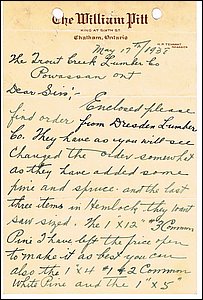 The William Pitt
KING AT SIXTH ST
Chatham, Ontario
May 17th / 193
The Trout Creek Lumber Co
Powassan ont
Dear Sirs:-
Enclosed please
find order from Dresden Lumber
Co. They have as you will see
changed the order somewhat
as they have added some
pine and spruce and the last
three items in Hemlock, they want
saw sized. The 1"x12" Common
Pine I have left the price open
to make it as best you can
also the 1x4 #1 & 2 Common
White Pine and the 1"x5"